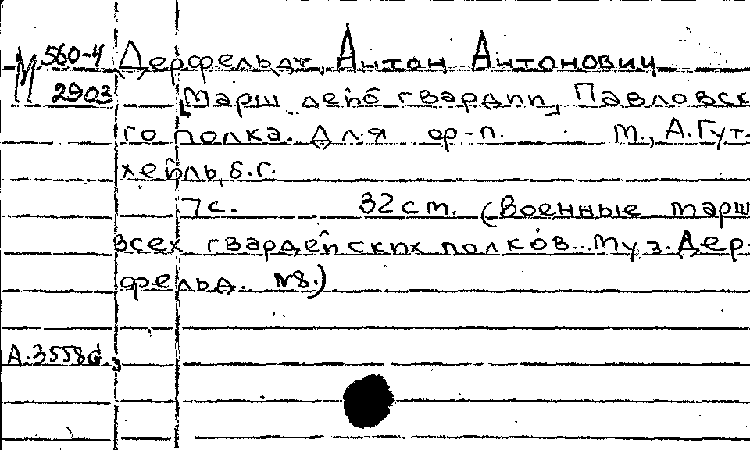 М 560-4 Дерфельдт, Антон Антонович
2903 [Марш лейб гвардии, Павловск
го полка. Для ор-п. М., А. Гут-
хейль, б.г.
7с. 32 ст. (Военные марш
всех гвардейских полков. Муз. Дер-
фельд. №8.)
А.3558